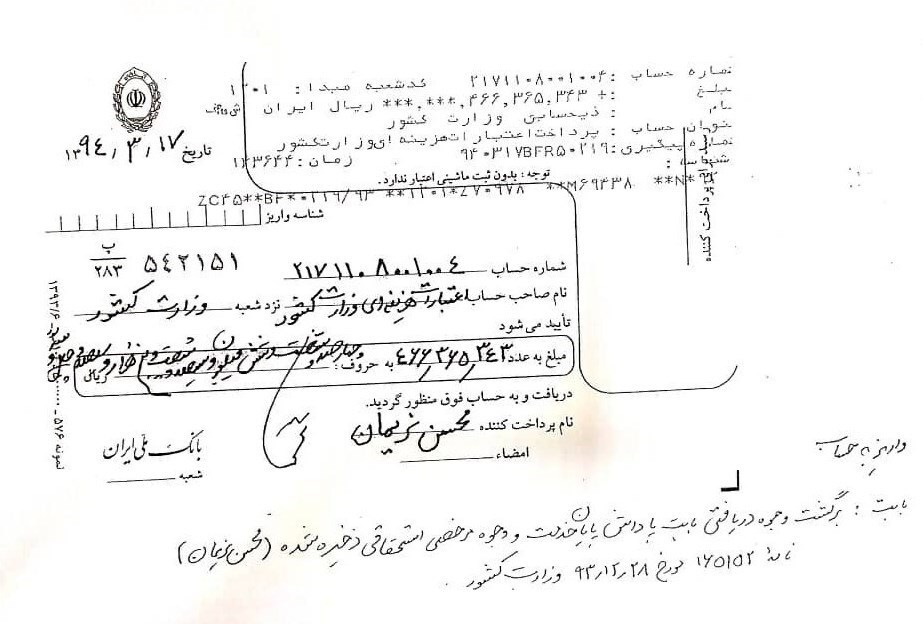 نماره حساب : ۲۱۷۱۱۰۸۰۰۱۰۰۴ کدشعبه مبدا: ۱۳۰۱
مبلغ : + ۴۶۶,۳۶۵,۳۴۳,***,*** ریال ایران
نام : ذیحسابی وزارت کشور
عنوان حساب : پرداخت اعتبارات هزینه ای وزارت کشور
شماره پیگیری: ۹۴۰۳۱۷BFR۵۰۲۱۹ زمان: ۱۲۳۶۴۴
شناسه :
توجه : بدون ثبت ماشینی اعتبار ندارد.
تاریخ ۱۳۹۴/۳/۱۷
ZC۴۵**BF*۰۲۱۹/۹۳ **۱۳۰۱*۲۷۰۹۷۸ **M۶۹۴۳۸ **N*
شناسه واریز
پرداخت کننده
پ
۲۸۳ ۵۴۲۱۵۱
شماره حساب ۲۱۷۱۱۰۸۰۰۱۰۰۴
نام صاحب حساب اعتبارات هزینه ای وزارت کشور نزد شعبه وزارت کشور
تأیید می شود
مبلغ به عدد ۴۶۶,۳۶۵,۳۴۳ به حروف: چهارصد و شصت و شش میلیون و سیصد و شصت و پنج هزار و سیصد و چهل و سه ریال
دریافت و به حساب فوق منظور گردید.
نام پرداخت کننده محسن نریمان
امضاء
بانک ملی ایران
شعبه
نمونه ۵۷۶
واریز به حساب
بابت : برگشت وجوه دریافتی بابت پاداش پایان خدمت و وجوه مرخصی استحقاقی ذخیره شده (محسن نریمان)
نامه ۱۶۵۱۵۲ مورخ ۹۳,۱۲,۲۸ وزارت کشور.